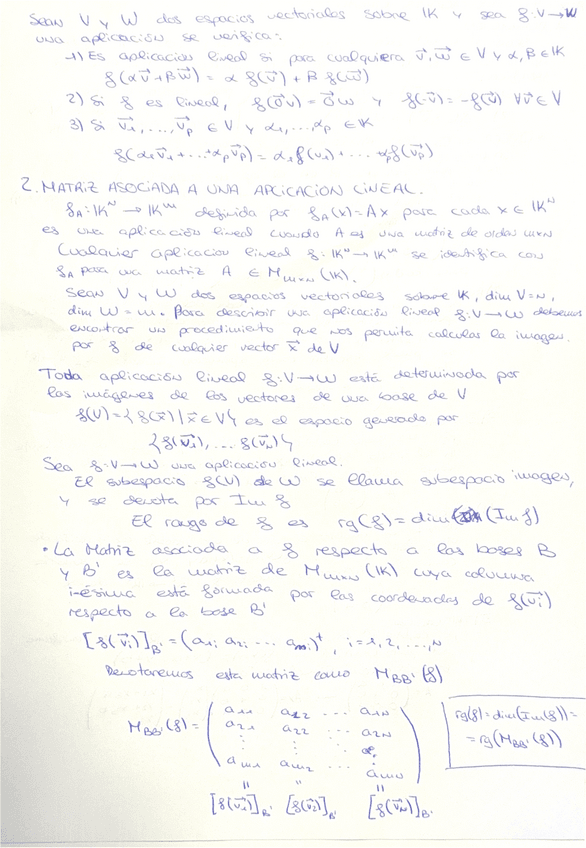 Sean V y W dos espacios vectoriales sobre IK y sea f: V→W
una aplicación se verifica:
1) Es aplicación lineal si para cualquiera v⃗, w⃗ ∈ V y α, β ∈ IK
f(αv⃗ + βw⃗) = α f(v⃗) + β f(w⃗)
2) Si f es lineal, f(0⃗v) = 0⃗w y f(-v⃗) = -f(v⃗) ∀v⃗ ∈ V
3) Si v⃗₁, ..., v⃗p ∈ V y α₁, ..., αp ∈ IK
f(α₁v⃗₁ + ... + αpv⃗p) = α₁f(v₁) + ... αpf(v⃗p)
2. MATRIZ ASOCIADA A UNA APLICACION LINEAL.
fA: IKᴺ → IKᵐ definida por fA(x) = Ax para cada x ∈ IKᴺ
es una aplicación lineal cuando A es una matriz de orden mxn
Cualquier aplicación lineal f: IKⁿ → IKᵐ se identifica con
fA para una matriz A ∈ Mmxn (IK).
Sean V y W dos espacios vectoriales sobre IK, dim V = n,
dim W = m. Para describir una aplicación lineal f: V→W debemos
encontrar un procedimiento que nos permita calcular la imagen
por f de cualquier vector x⃗ de V
Toda aplicación lineal f: V→W está determinada por
las imágenes de los vectores de una base de V
f(V) = { f(x⃗) | x⃗ ∈ V } es el espacio generado por
{ f(v⃗₁), ... f(v⃗n) }
Sea f: V→W una aplicación lineal.
El subespacio f(V) de W se llama subespacio imagen,
y se denota por Im f
El rango de f es rg(f) = dim (Im f)
• La Matriz asociada a f respecto a las bases B
y B' es la matriz de Mmxn (IK) cuya columna
i-ésima está formada por las coordenadas de f(v⃗i)
respecto a la base B'
[f(v⃗i)]B' = (a1i a2i ... ami)ᵗ, i = 1, 2, ..., N
Denotaremos esta matriz como MBB' (f)
MBB' (f) = ( a11 a12 ... a1N
a21 a22 ... a2N
am1 am2 ... amN )
[f(v⃗₁)]B' [f(v⃗₂)]B' [f(v⃗N)]B'
rg(f) = dim(Im(f)) =
= rg(MBB' (f))